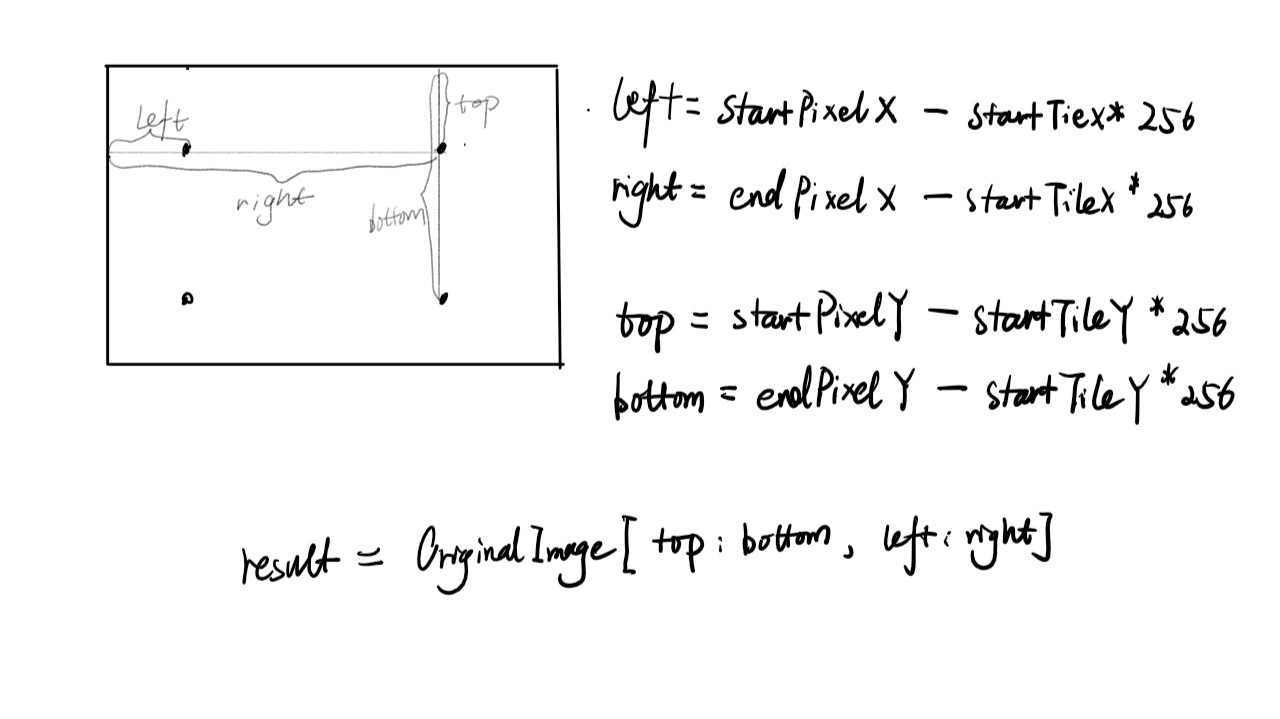 left
top
right
bottom
left = startPixelX - startTiex * 256
right = endPixelX - startTileX * 256
top = startPixelY - startTileY * 256
bottom = endPixelY - startTileY * 256
result = OriginalImage[top:bottom, left:right]